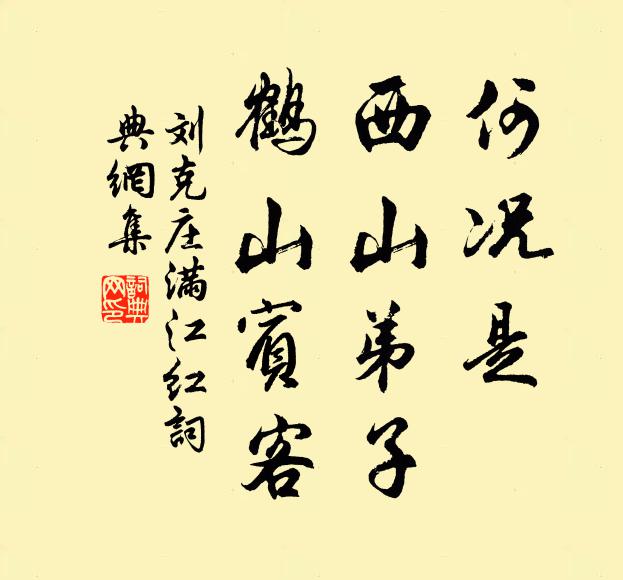 何况是
西山弟子
鹤山宾客
刘克庄满江红詞
典網集
詞典
网印